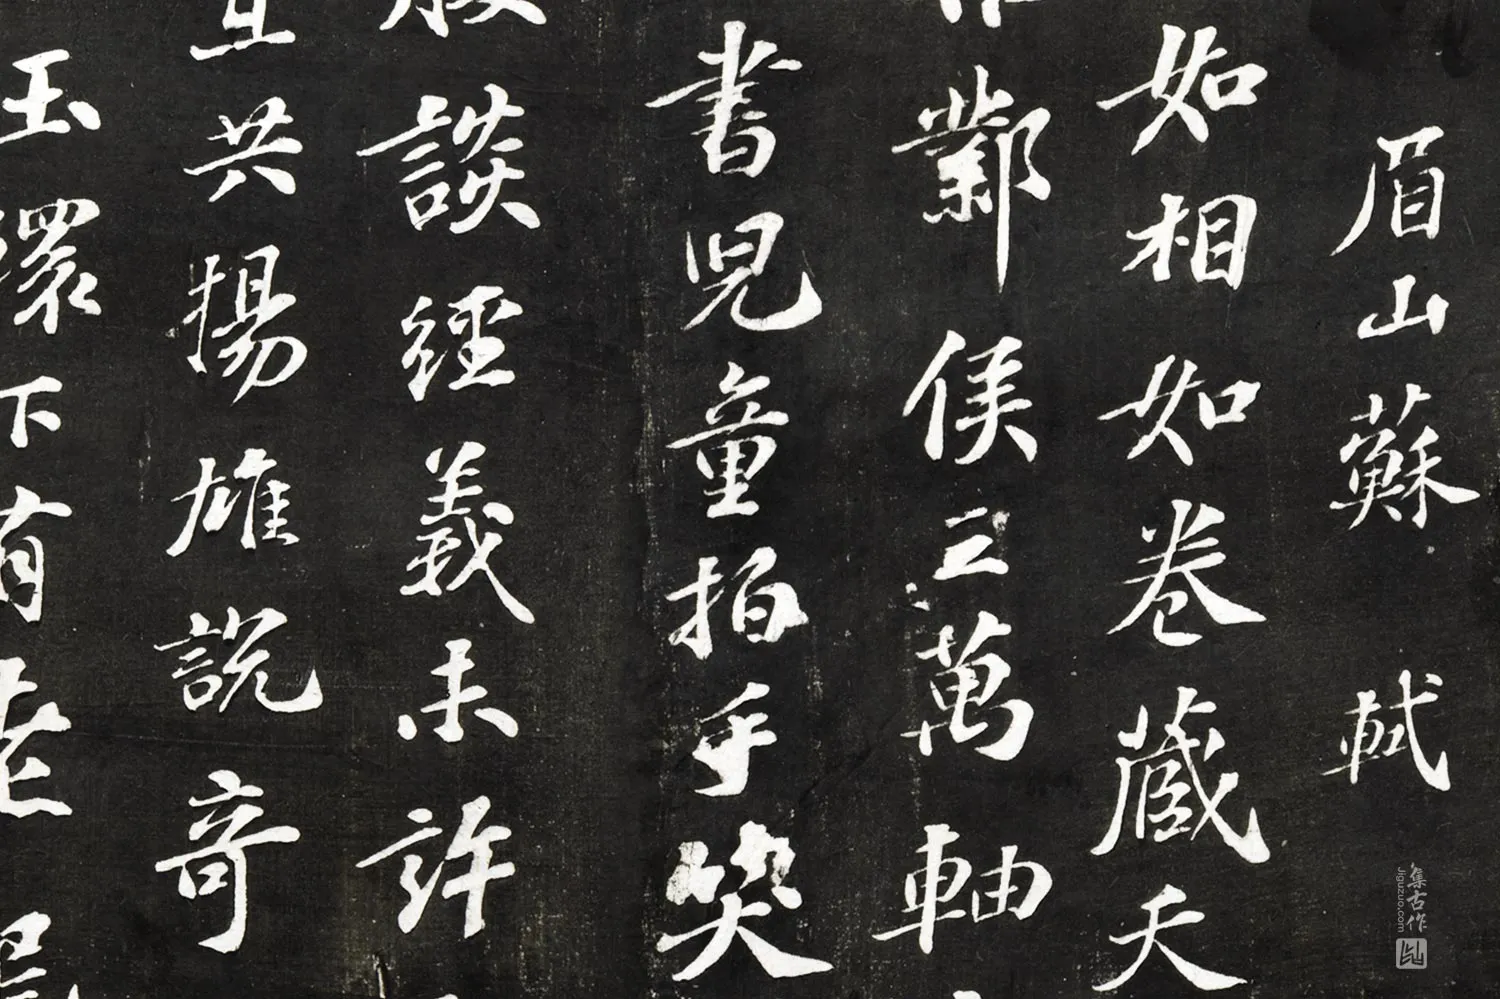 眉山蘇軾
如相如卷藏天
鄴侯三萬軸
書兒童拍手笑
談經義未許
共揚雄說奇
玉環下有老
集古作
Jiguzuo.com